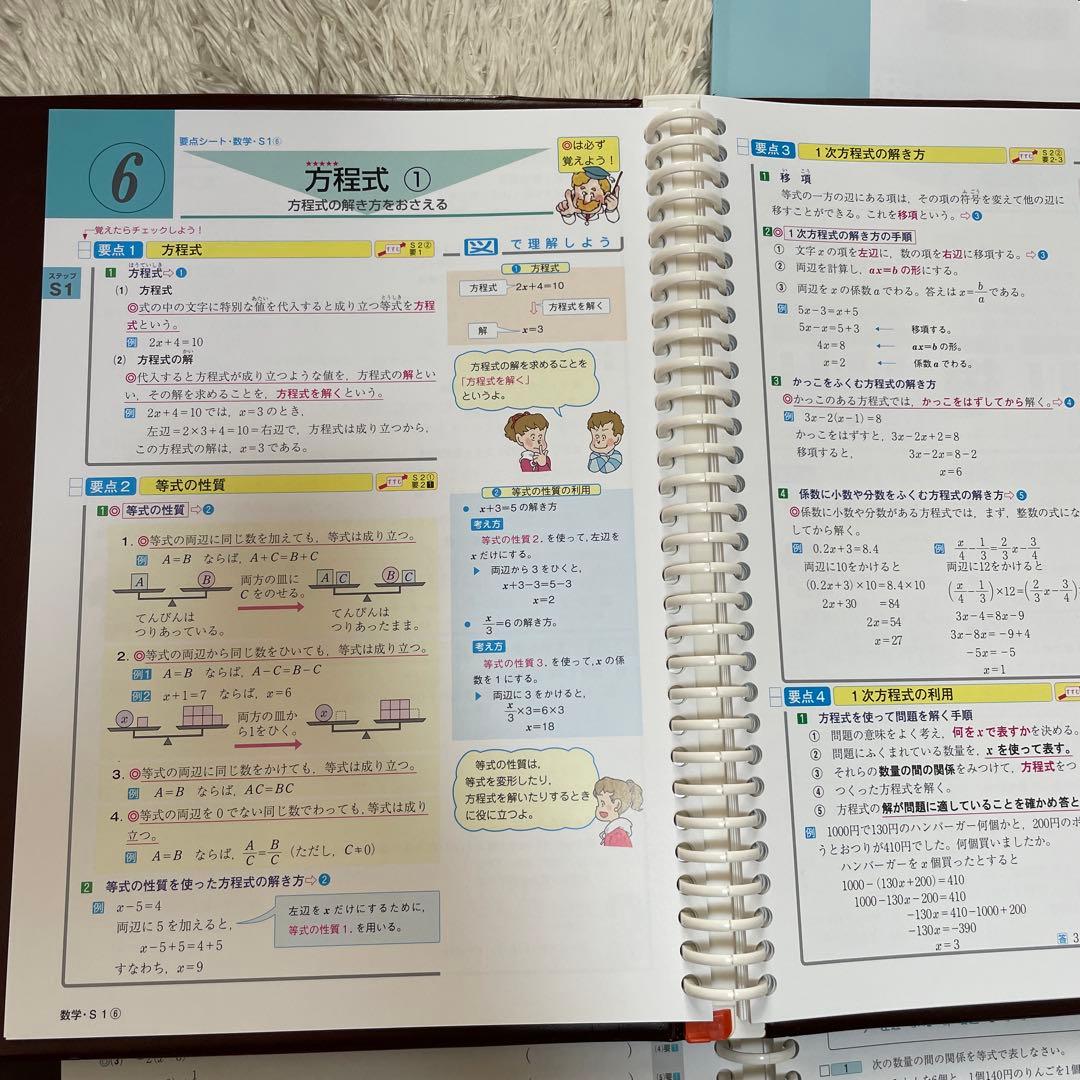 6
要点シート・数学・S1⑥
★★★★★
方程式 ①
方程式の解き方をおさえる
◎は必ず
覚えよう!
覚えたらチェックしよう!
要点1 方程式
すすむ S2② 要1
ステップ
S1
1 方程式⇨❶
ほうていしき
(1) 方程式
◎式の中の文字に特別な値を代入すると成り立つ等式を方程
あたい とうしき
式という。
例 2x+4=10
(2) 方程式の解
かい
◎代入すると方程式が成り立つような値を,方程式の解とい
い,その解を求めることを,方程式を解くという。
例 2x+4=10では,x=3のとき,
左辺=2×3+4=10=右辺で,方程式は成り立つから,
この方程式の解は,x=3である。
図で理解しよう
❶ 方程式
方程式 2x+4=10
方程式を解く
解 x=3
方程式の解を求めることを
「方程式を解く」
というよ。
要点2 等式の性質
すすむ S2① 要2 1
1◎ 等式の性質⇨❷
1. ◎等式の両辺に同じ数を加えても,等式は成り立つ。
例 A=B ならば,A+C=B+C
A B 両方の皿に A C B C
Cをのせる。
てんびんは てんびんは
つりあっている。 つりあったまま。
2. ◎等式の両辺から同じ数をひいても,等式は成り立つ。
例1 A=B ならば,A−C=B−C
例2 x+1=7 ならば,x=6
x 両方の皿か x
ら1をひく。
3. ◎等式の両辺に同じ数をかけても,等式は成り立つ。
例 A=B ならば,AC=BC
4. ◎等式の両辺を0でない同じ数でわっても,等式は成り
立つ。
例 A=B ならば,A/C=B/C(ただし,C≠0)
2 等式の性質を使った方程式の解き方⇨❷
例 x−5=4
両辺に5を加えると,
x−5+5=4+5
すなわち,x=9
左辺をxだけにするために,
等式の性質1.を用いる。
❷ 等式の性質の利用
● x+3=5の解き方
考え方
等式の性質2.を使って,左辺を
xだけにする。
▶ 両辺から3をひくと,
x+3−3=5−3
x=2
● x/3=6の解き方。
考え方
等式の性質3.を使って,xの係
数を1にする。
▶ 両辺に3をかけると,
x/3×3=6×3
x=18
等式の性質は,
等式を変形したり,
方程式を解いたりするとき
に役に立つよ。
数学・S1⑥
要点3 1次方程式の解き方
すすむ S2② 要2・3
1 移項
い こう
等式の一方の辺にある項は,その項の符号を変えて他の辺に
ふごう
移すことができる。これを移項という。⇨❸
2◎ 1次方程式の解き方の手順
① 文字xの項を左辺に,数の項を右辺に移項する。⇨❸
② 両辺を計算し,ax=bの形にする。
③ 両辺をxの係数aでわる。答えはx=b/aである。
例 5x−3=x+5
5x−x=5+3 ← 移項する。
4x=8 ← ax=bの形。
x=2 ← 係数aでわる。
3 かっこをふくむ方程式の解き方
◎かっこのある方程式では,かっこをはずしてから解く。⇨❹
例 3x−2(x−1)=8
かっこをはずすと,3x−2x+2=8
移項すると, 3x−2x=8−2
x=6
4 係数に小数や分数をふくむ方程式の解き方⇨❺
◎係数に小数や分数がある方程式では,まず,整数の式にな
してから解く。
例 0.2x+3=8.4
両辺に10をかけると
(0.2x+3)×10=8.4×10
2x+30 =84
2x=54
x=27
例 x/4−1/3=2/3x−3/4
両辺に12をかけると
(x/4−1/3)×12=(2/3x−3/4)
3x−4=8x−9
3x−8x=−9+4
−5x=−5
x=1
要点4 1次方程式の利用
すすむ
1 方程式を使って問題を解く手順
① 問題の意味をよく考え,何をxで表すかを決める。
② 問題にふくまれている数量を,xを使って表す。
③ それらの数量の間の関係をみつけて,方程式をつ
④ つくった方程式を解く。
⑤ 方程式の解が問題に適していることを確かめ答と
例 1000円で130円のハンバーガー何個かと,200円のポ
うとおつりが410円でした。何個買いましたか。
ハンバーガーをx個買ったとすると
1000−(130x+200)=410
1000−130x−200=410
−130x=410−1000+200
−130x=−390
x=3
答 3
◎(3)
(4)要1
1 次の数量の間の関係を等式で表しなさい。
1個140円のりんごを1個